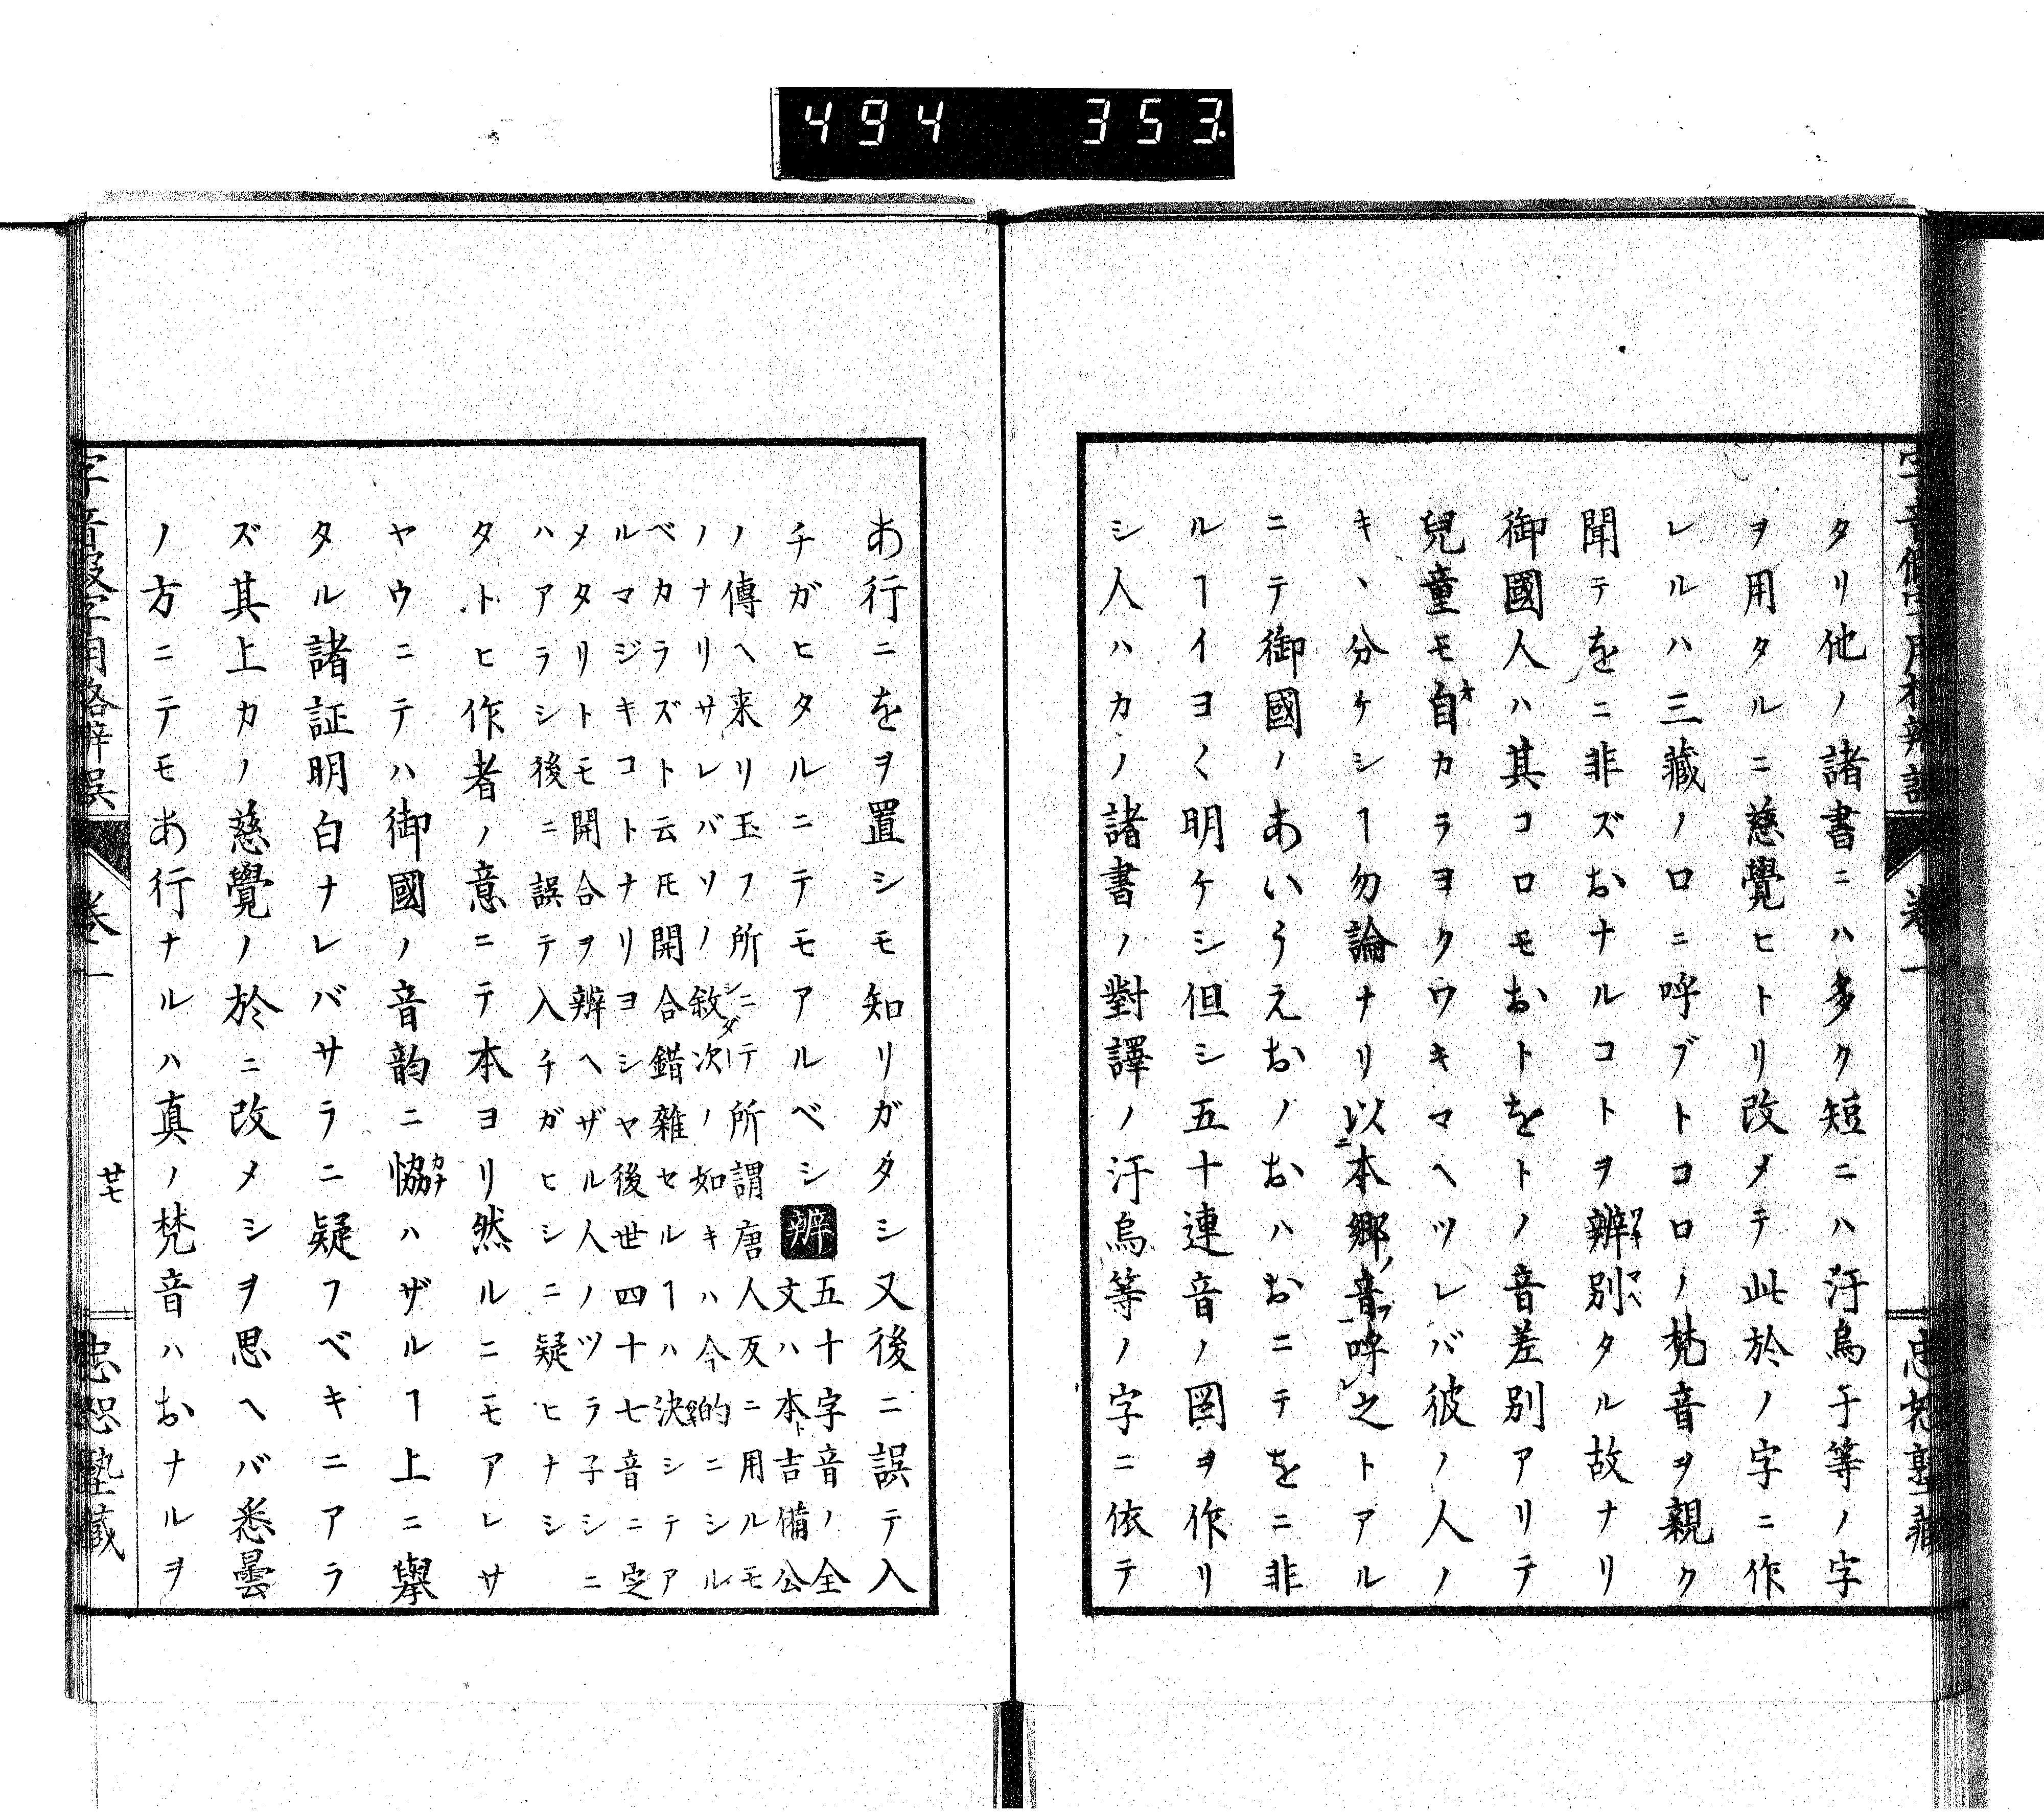 494 353
タリ他ノ諸書ニハ多ク短ニハ汙烏于等ノ字
ヲ用タルニ慈覺ヒトリ改メテ此於ノ字ニ作
レルハ三藏ノロニ呼ブトコロノ梵音ヲ親ク
聞テをニ非ズおナルコトヲ辨別タル故ナリ
御國人ハ其コロモおトをトノ音差別アリテ
兒童モ自カラヨクウキマヘツレバ彼ノ人ノ
キヽ分ケシヿ勿論ナリ以本郷音呼之トアル
ニテ御國ノあいうえおノおハおニテをニ非
ルヿイヨ〱明ケシ但シ五十連音ノ図ヲ作リ
シ人ハカノ諸書ノ對譯ノ汙烏等ノ字ニ依テ
あ行ニをヲ置シモ知リガタシ又後ニ誤テ入
チガヒタルニテモアルベシ辨五十字音ノ全
文ハ本ト吉備公
ノ傳ヘ来リ玉フ所ニテ所謂唐人反ニ用ルモ
ノナリサレバソノ敘次ノ如キハ今的ニシル
ベカラズト云𪜈開合錯雜セルヿハ決シテア
ルマジキコトナリヨシヤ後世四十七音ニ定
メタリトモ開合ヲ辨ヘザル人ノツラ子シニ
ハアラシ後ニ誤テ入チガヒシニ疑ヒナシ
タトヒ作者ノ意ニテ本ヨリ然ルニモアレサ
ヤウニテハ御國ノ音韵ニ恊ハザルヿ上ニ擧
タル諸証明白ナレバサラニ疑フベキニアラ
ズ其上カノ慈覺ノ於ニ改メシヲ思ヘバ悉曇
ノ方ニテモあ行ナルハ真ノ梵音ハおナルヲ
字音假字用格辨誤 卷一 廿七 忠恕塾藏